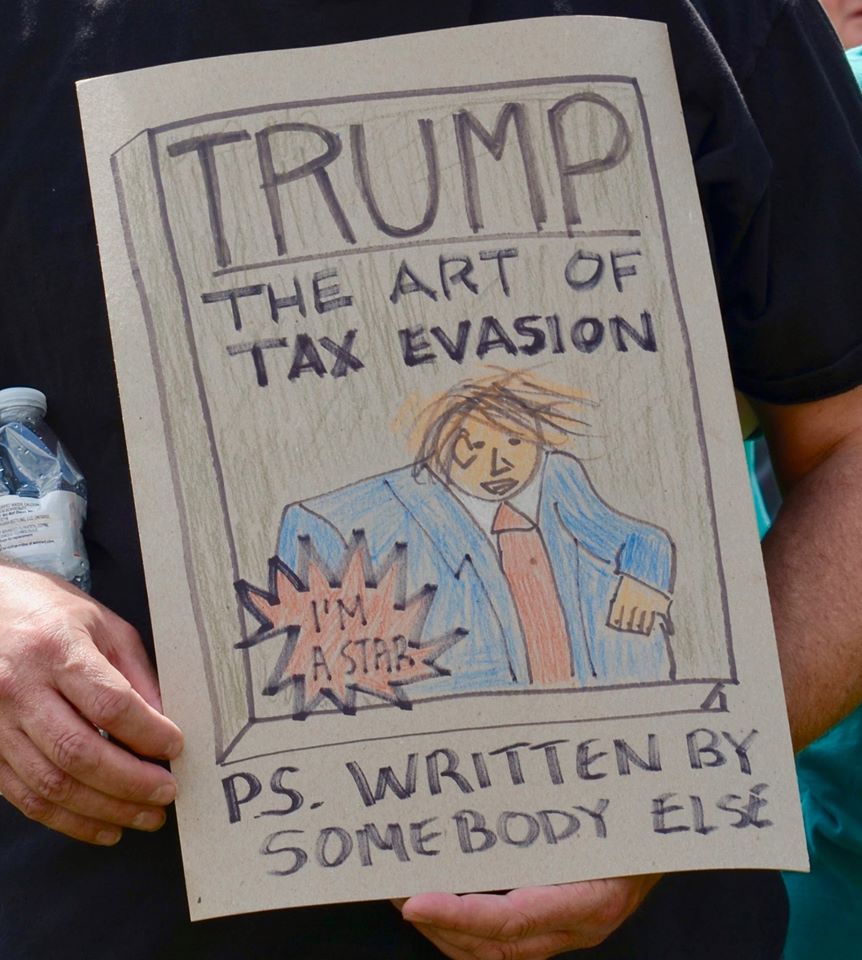 TRUMP
THE ART OF
TAX EVASION
I'M
A STAR
P.S. WRITTEN BY
SOMEBODY ELSE